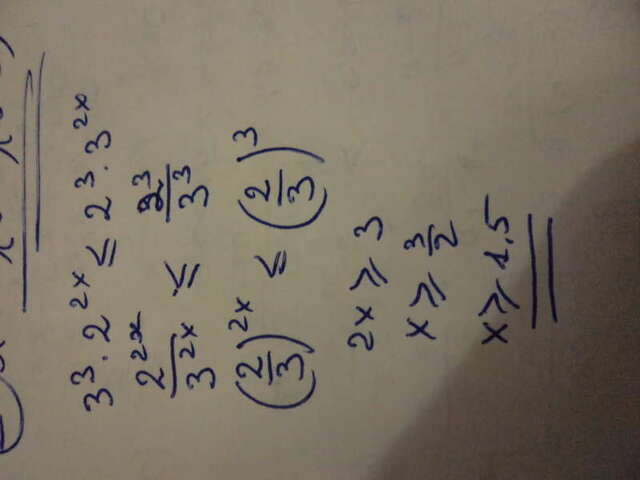 3³ · 2²ˣ ≤ 2³ · 3²ˣ
2²ˣ/3²ˣ ≤ 2³/3³
(2/3)²ˣ ≤ (2/3)³
2x ≥ 3
x ≥ 3/2
x ≥ 1,5